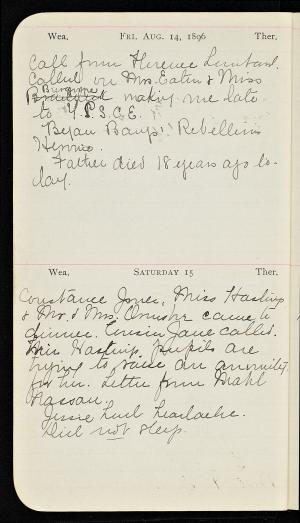 Wea. FRI. AUG. 14, 1896 Ther.
Call from Florence Lombard.
Called on Mrs. Eaton & Miss
Burgoyne
making me late
to Y.P.S.C.E.
Began Bangs' "Rebellious
Heroine.
Father died 18 years ago to-
day.
Wea. SATURDAY 15 Ther.
Constance Jones, Miss Hastings
& Mr. & Mrs. Ormsby came to
dinner. Cousin Jane called.
Miss Hastings pupils are
trying to raise an annuity
for her. Letter from Mabl
Nassau.
Jessie had headache.
Did not sleep.